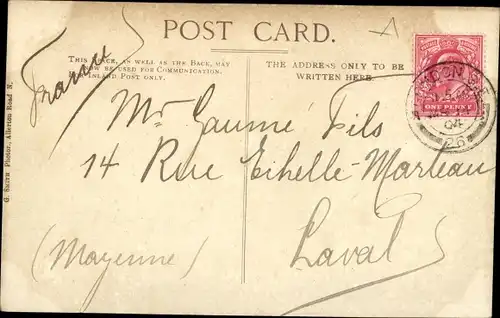 POST CARD.
THIS SPACE, AS WELL AS THE BACK, MAY
NOW BE USED FOR COMMUNICATION.
FOR INLAND POST ONLY.
THE ADDRESS ONLY TO BE
WRITTEN HERE.
France
Mr Gaumé Fils
14 Rue Echelle-Marteau
Laval
(Mayenne)
ONE PENNY
LONDON
04
26
G. Smith Photor., Allerton Road N.